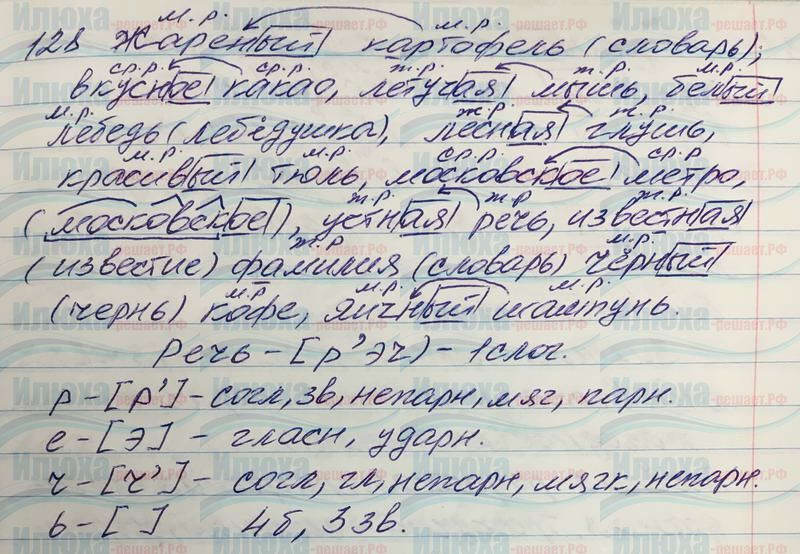 128 Жареный картофель (словарь);
м.р. м.р.
вкусное какао, летучая мышь, белый
ср.р. ср.р. ж.р. ж.р. м.р.
лебедь (лебёдушка), лесная глушь,
м.р. ж.р. ж.р.
красивый тюль, московское метро,
м.р. м.р. ср.р. ср.р.
(московское), устная речь, известная
ж.р. ж.р. ж.р.
(известие) фамилия (словарь) чёрный
ж.р. м.р.
(чернь) кофе, яичный шампунь.
м.р м.р. м.р.
Речь – [р'эч) – 1 слог.
р – [р'] – согл, зв, непарн, мяг, парн.
е – [э] – гласн, ударн.
ч – [ч'] – согл, гл, непарн, мягк, непарн.
ь – [ ] 4б, 3 зв.
Илюха-решает.РФ